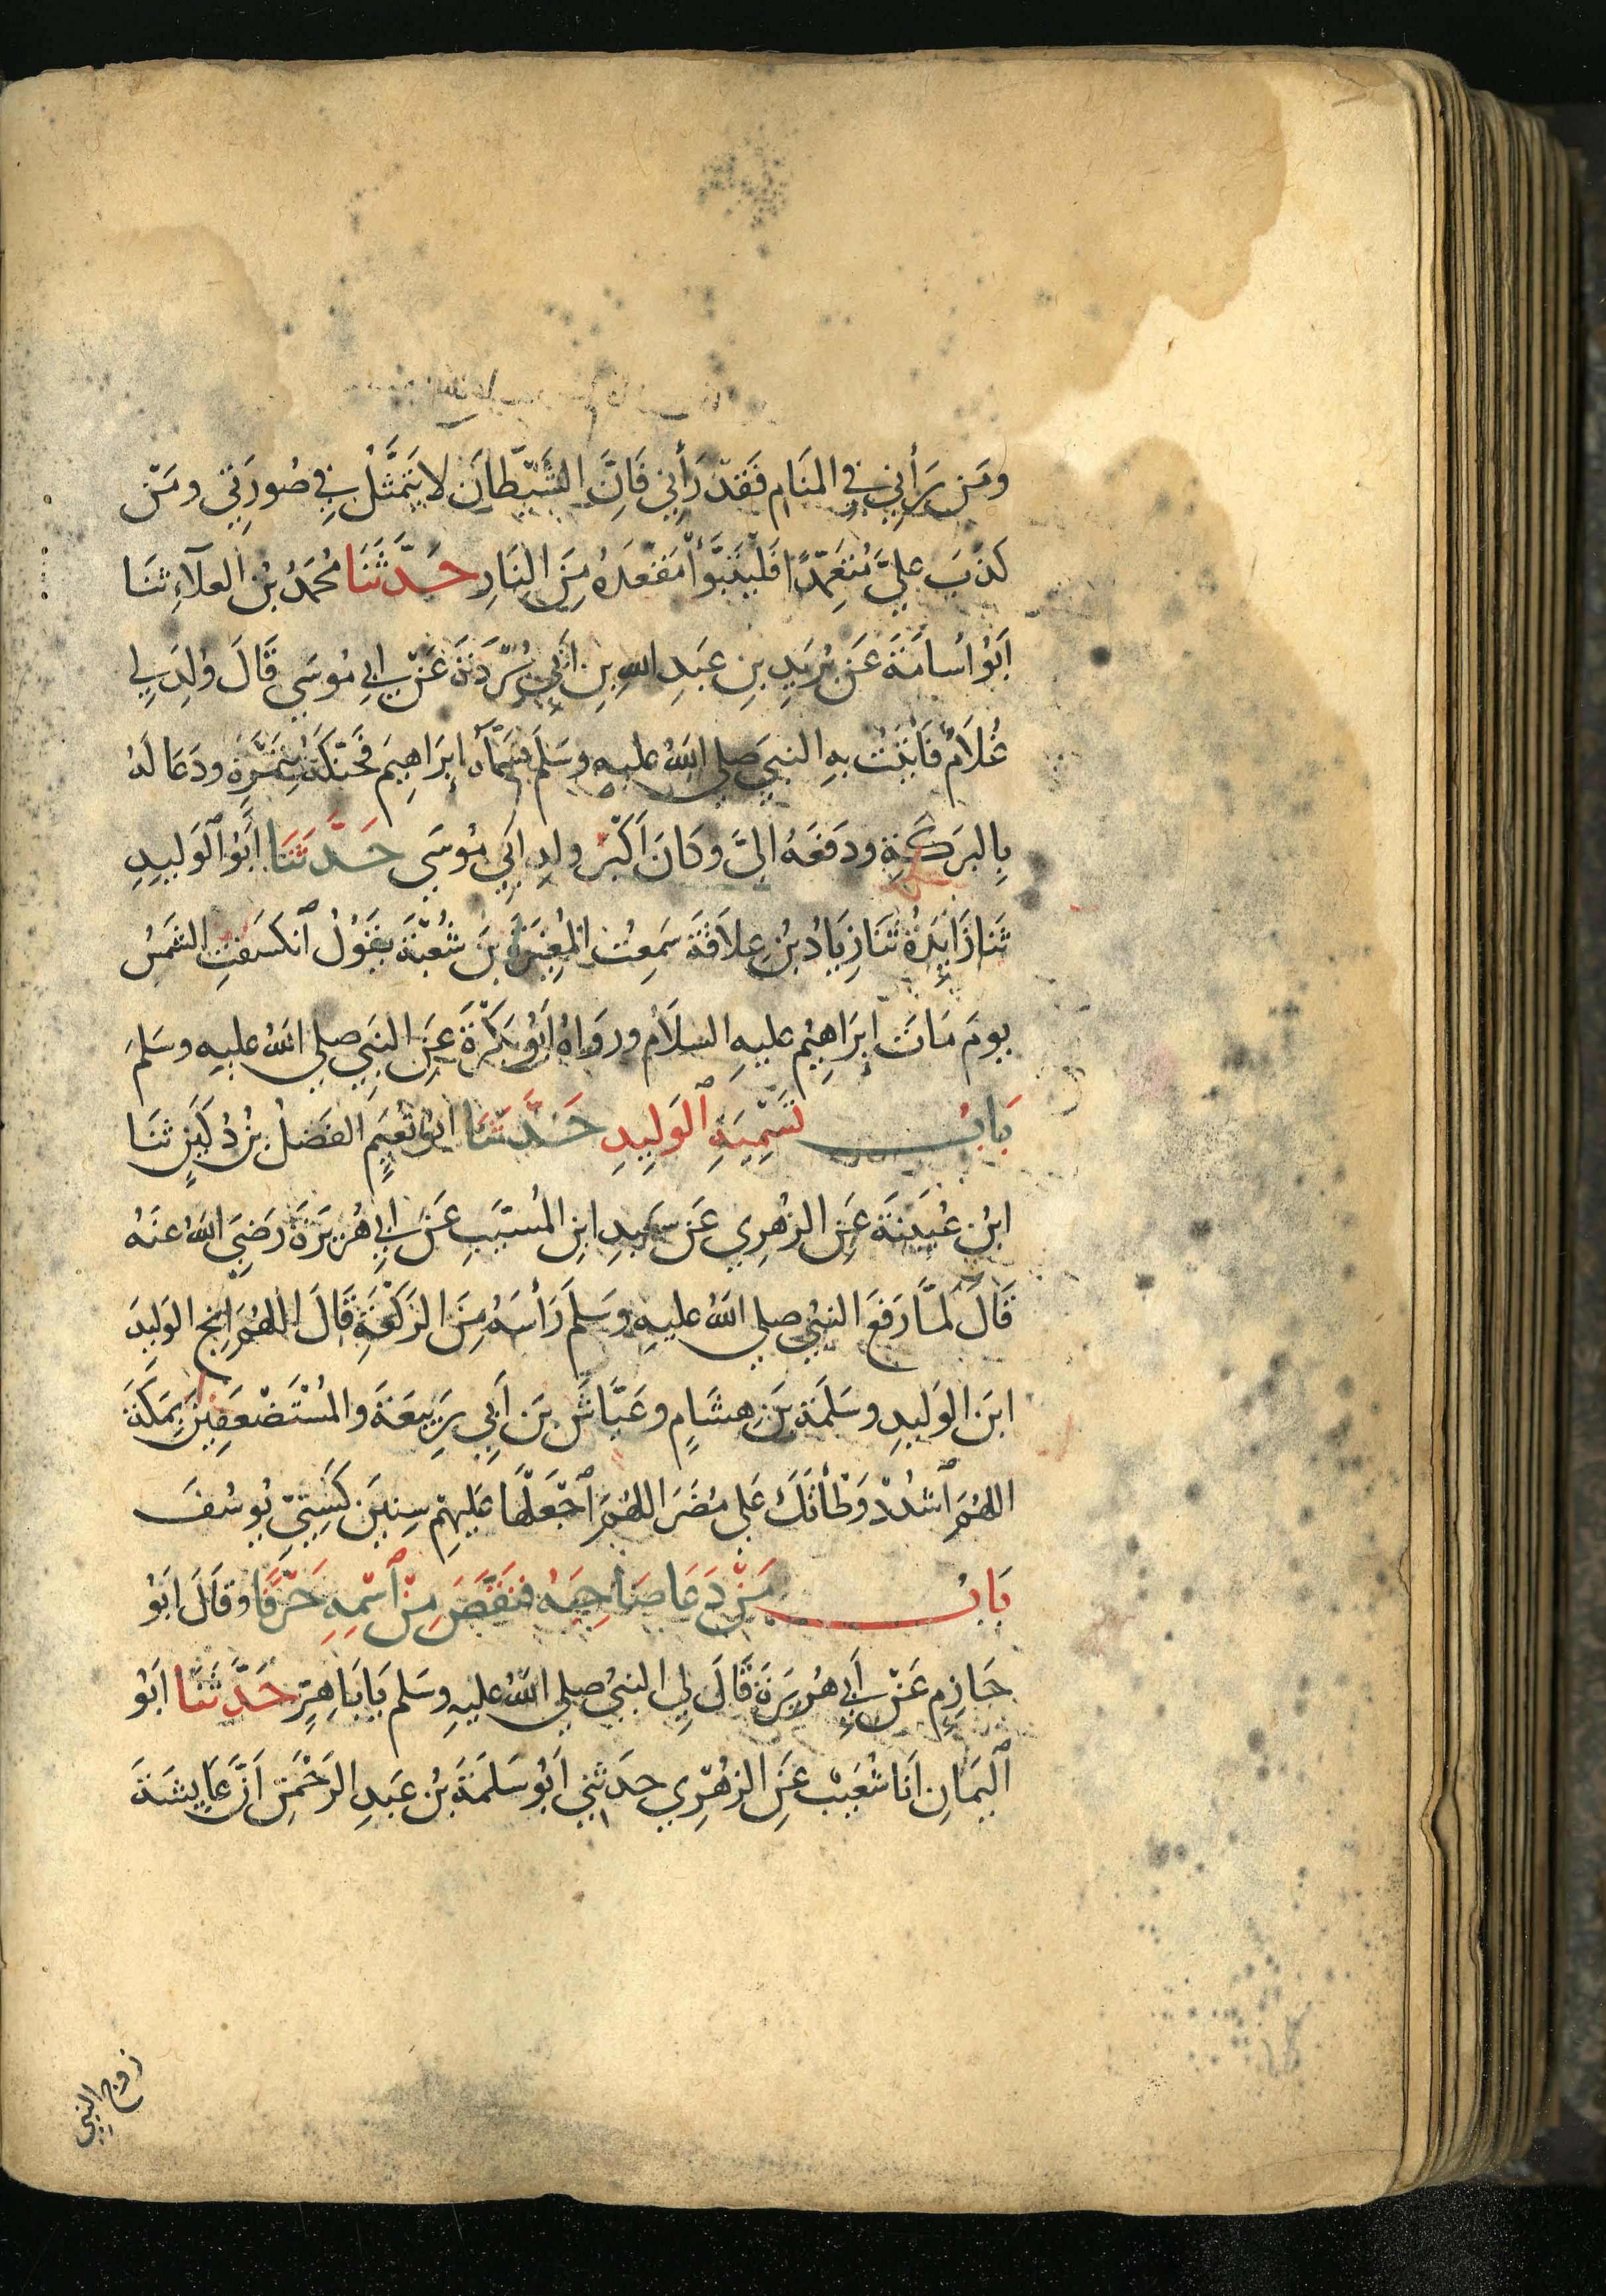 ومَن رَأَني في المنَام فَقَدْ رَأَنِي فَاِنَّ الشَّيْطَانَ لا يَتَمَثَّلُ فِي صُورَتِي ومَنْ
كذَبَ عليَّ مُتَعَمِّدًا فَلْيَتَبَوَّأْ مَقْعَدَهُ مِنَ النَارِ حَدَّثَنَا مُحَمَدُ بْنُ العلآءِ ثنَا
اَبُو اُسامَةَ عَن بُرَيدِ بنِ عبَدِ اللهِ بنِ اَبِي بُرْدَةَ عَنْ ابِي مُوسَي قَالَ وُلِدَ لِي
غُلَامٌ فَاَتَيْتُ بهِ النبيَ صلي اللهُ عليهِ وسَلَم فسَمَّاهُ اِبرَاهِيمَ فحَنَّكَهُ بِتَمْرَةٍ ودَعَا لَهُ
بِالبرَكَةِ ودَفعَهُ اليَّ وكَانَ اَكْبَرَ ولدِ اَبِي مُوسَي حَدَّثَنَا اَبُو الوَليدِ
ثنَا زَايِدَةُ ثنَا زِيَادُ بْنُ عِلَاقَةَ سَمِعتُ المُغِيرَةَ بنَ شُعْبَةَ يقَوُلُ انكسَفتِ الشَمسُ
يومَ مَاتَ اِبرَاهِيْم عليهِ السلَامُ ورَوَاهُ اَبُو بَكْرَةَ عَنِ النبَيِ صلي اللهُ عليهِ وسَلمَ
بَابُ تَسْمِيَةِ الوَلِيدِ حَدَّثَنَا ابُو نُعَيمٍ الفَضلُ بْنُ دُكَينٍ ثنَا
ابْنُ عُيَينَةَ عَنِ الزهْرِي عَن سَعِيدِ ابنِ المُسَيّبِ عَنْ ابِي هُرَيرَةَ رَضيَ اللهُ عنهُ
قَالَ لمَّا رَفعَ النبيُ صلي اللهُ عليهِ وسَلمَ رَأسَهُ مِنَ الرَكْعَةِ قَالَ اللهُمَ اَنجِ الوَليدَ
ابنَ الوَليدِ وسَلَمَةَ بنَ هِشَامٍ وعَيَّاشَ بنَ اَبِي رَبِيعَةَ والمُسْتَضْعَفِينَ بِمَكَةَ
اللهُمَ اشدُدْ وَطْأَتَكَ عَلي مُضَرَ اللهُمَ اجْعَلْهَا عَلَيهِمْ سِنِينَ كَسِنِيْ يُوسُفَ
بَابُ مَنْ دَعَا صَاحِبَهُ فنَقَصَ مِنْ اسْمِهِ حَرْفًا وقَالَ ابُو
حَازِمٍ عَنْ اَبِي هُرَيرَةَ قَالَ لِي النبيُ صلي اللهُ عليهِ وسَلم يَابَا هِرٍّ حَدَّثَنَا اَبُو
اليَمَانِ اَنَا شُعَيبٌ عَنِ الزهْرِي حدَثنِي اَبُو سَلَمَةَ بْنُ عَبدِ الرَحْمَنِ اَنَّ عَايِشَةَ
زوج النبي